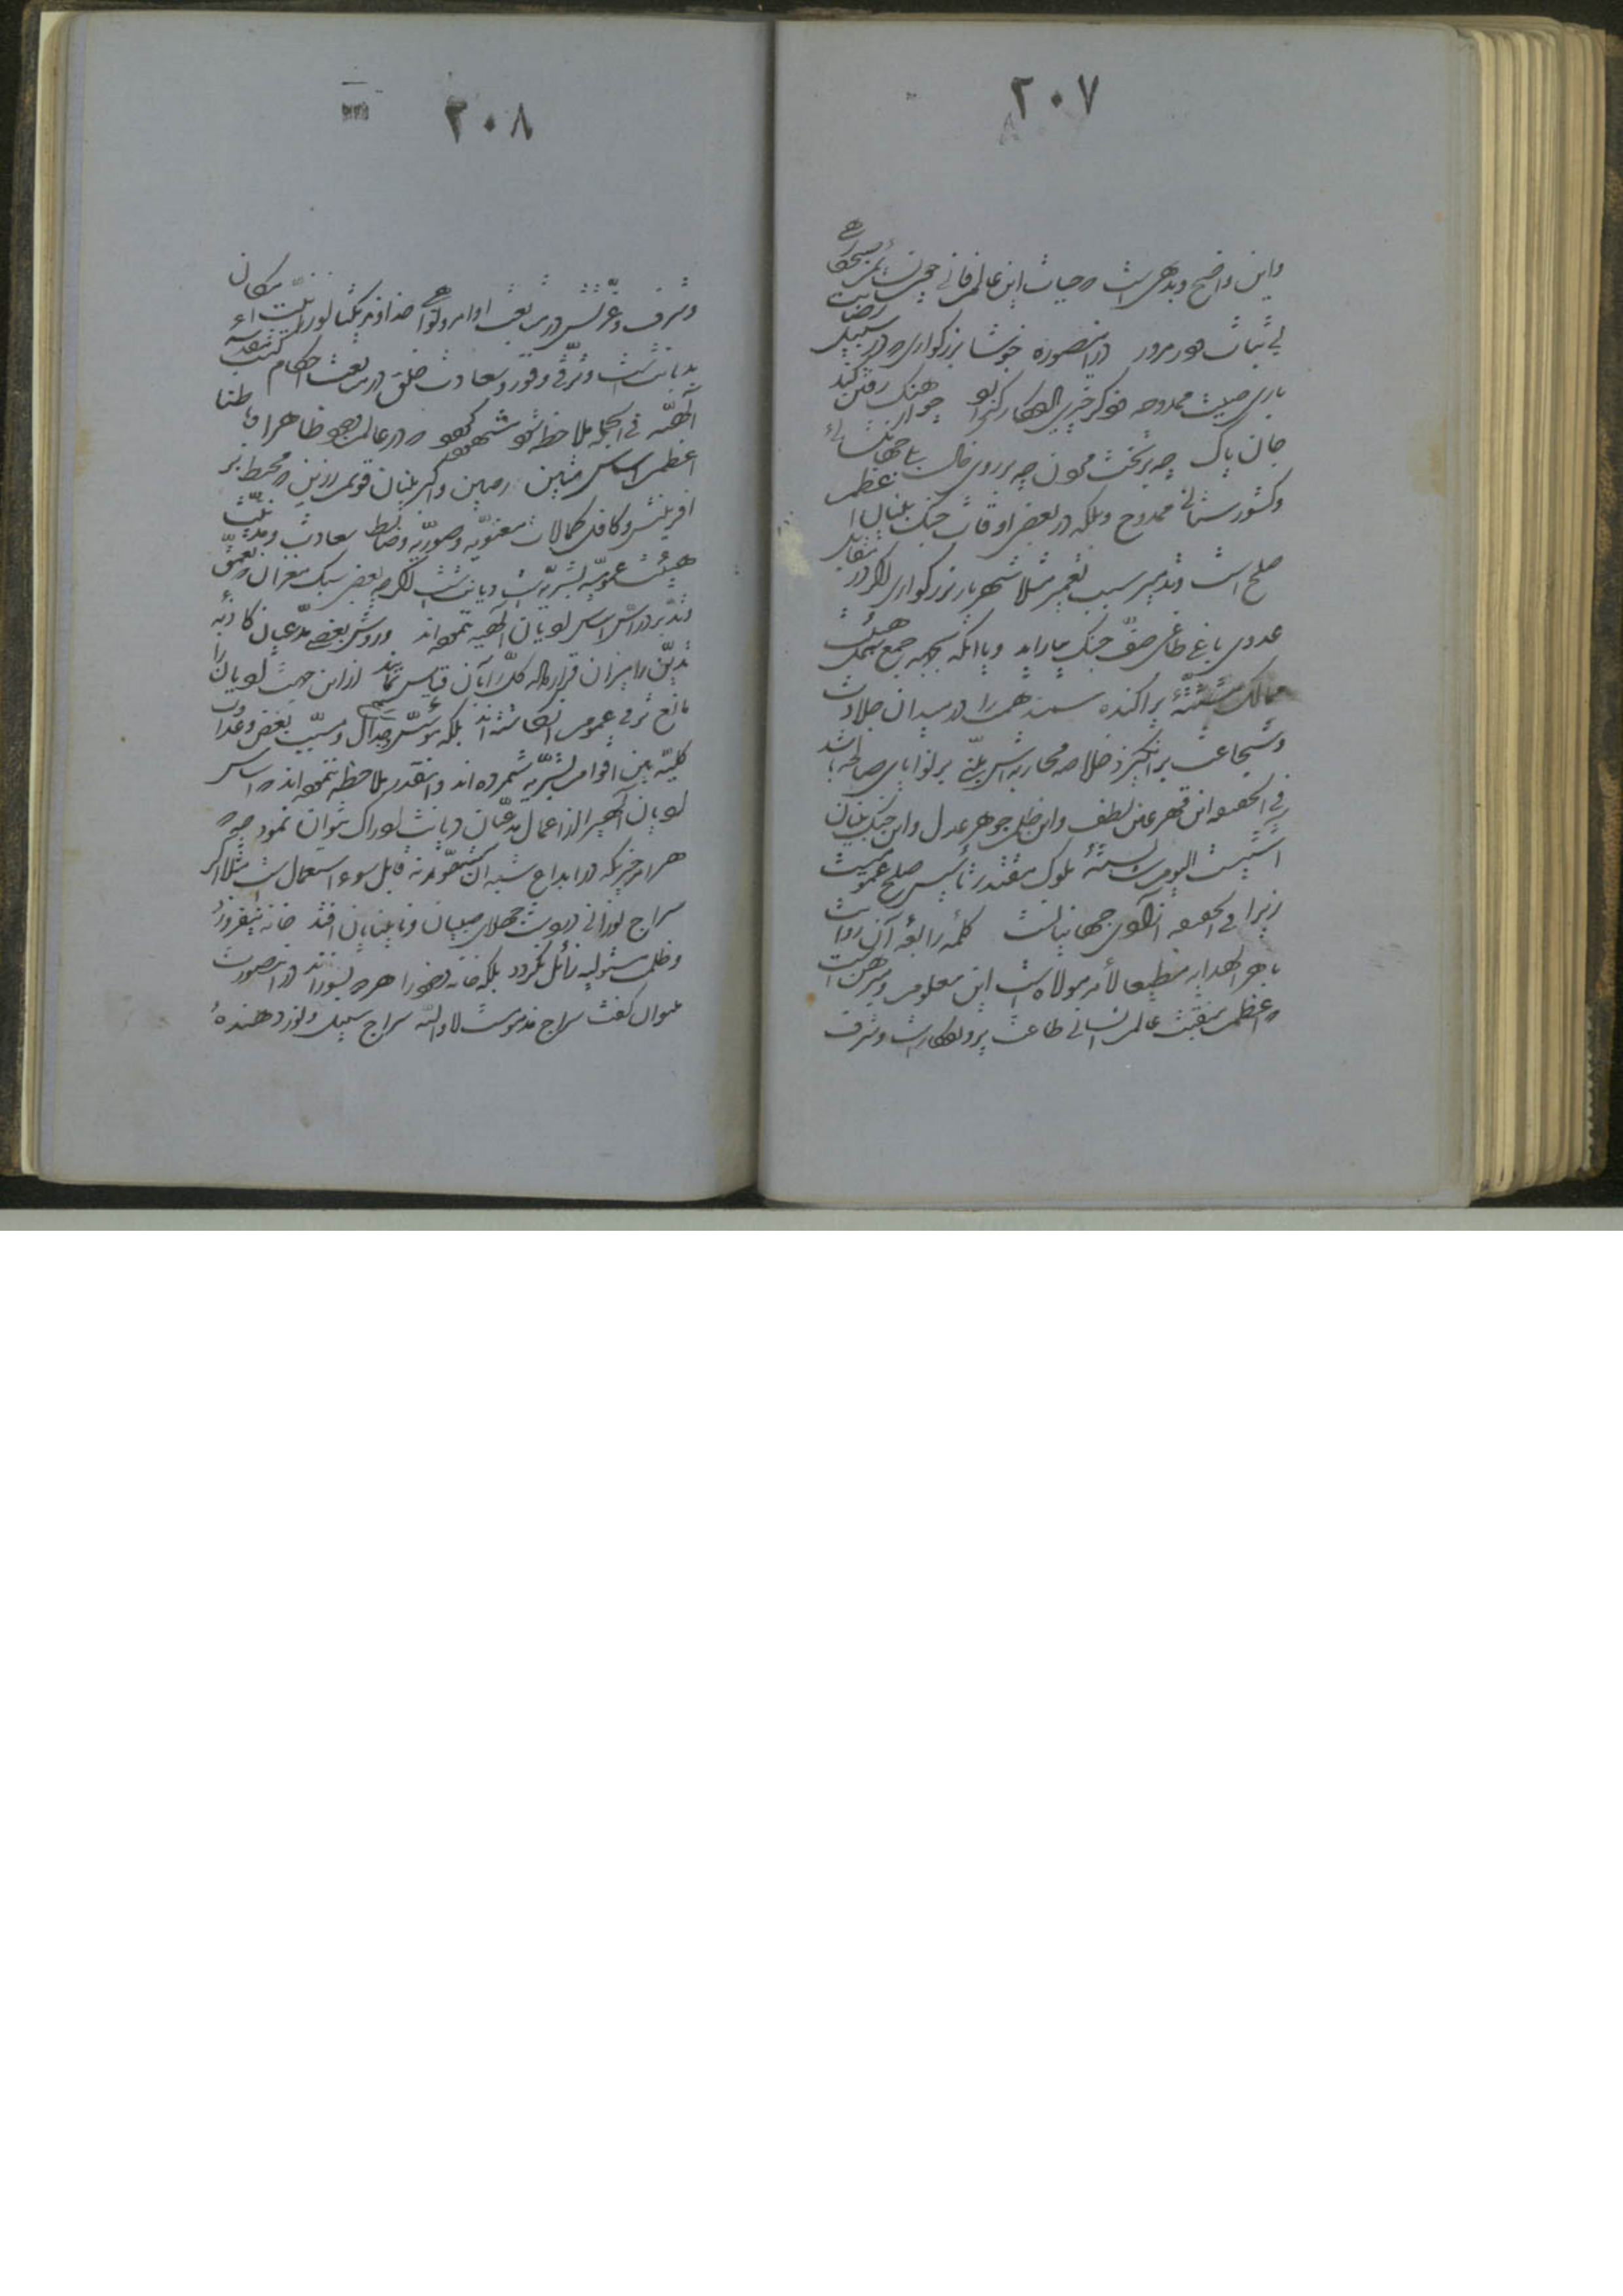 ۲۰۷
واین واضح وبدیهی است که حیات این عالم فانی چون نسائم صبحگاهی
بی ثبات و در مرور در اینصورت خوشا بزرگواری که در سبیل رضایت
باری صیت ممدوحه و ذکر خیری یادگار گذارد چو آهنگ رفتن کند
جان پاک چه بر تخت مردن چه بر روی خاک بلی جهانگشائی
وکشورستانی ممدوح وبلکه در بعض اوقات جنگ بنیان اعظم
صلح است وتدمیر سبب تعمیر مثلا شهریار بزرگواری اگر در مقابل
عدوی باغی طاغی صف جنگ بیاراید ویا آنکه بجهة جمع شمل هیئت
ممالک مشتته پراکنده سمند همت را در میدان جلادت
وشجاعت برانگیزد خلاصه محاربه اش مبنی بر نوایای صالحه باشد
فی الحقیقه این قهر عین لطف واین ظلم جوهر عدل واین جنگ بنیان
آشتیست الیوم شایسته ملوک مقتدر تأسیس صلح عمومیست
زیرا فی الحقیقه آزادگی جهانیانست کلمه رابعه آن روایت
باهر الهدایه مطیعا لأمر مولاه است این معلوم ومبرهن است
که اعظم منقبت عالم انسانی طاعت پروردگار است وشرف
۲۰۸
وشرف وعزتش در متابعت اوامر ونواهی خداوند یکتا نورانیت امکان
بدیانت است وترقی وفوز وسعادت خلق در متابعت احکام کتب مقدسه
الهیه فی الجمله ملاحظه شود مشهود گردد که در عالم وجود ظاهرا وباطنا
اعظم اساس متین رصین واکبر بنیان قویم رزین که محیط بر
آفرینش وکافل کمالات معنویه وصوریه وضابط سعادت ومدنیت
هیئت عمومیه بشریه است دیانت است اگر چه بعضی سبک مغزان که تعمق
وتدبر در اس اساس ادیان الهیه ننموده اند وروش بعضی مدعیان کاذبه
تدین را میزان قرار داده کل را بآن قیاس نمایند از این جهت ادیان را
مانع ترقی عموم انگاشته اند بلکه مؤسس جدال ومسبب بغض وعداوت
کلیه بین اقوام بشریه شمرده اند واینقدر ملاحظه ننموده اند که اساس
ادیان الهیه را از اعمال مدعیان دیانت ادراک نتوان نمود چه که
هر امر خیری که در ابداع شبه آن متصور نه قابل سوء استعمال است مثلا اگر
سراج نورانی در دست جهلای صبیان ونابینایان افتد خانه نیفروزد
وظلمت مستولیه زائل نگردد بلکه خانه وخود را هر دو بسوزاند در اینصورت
میتوان گفت سراج مذمومست لا والله سراج سبیل ونور دهنده